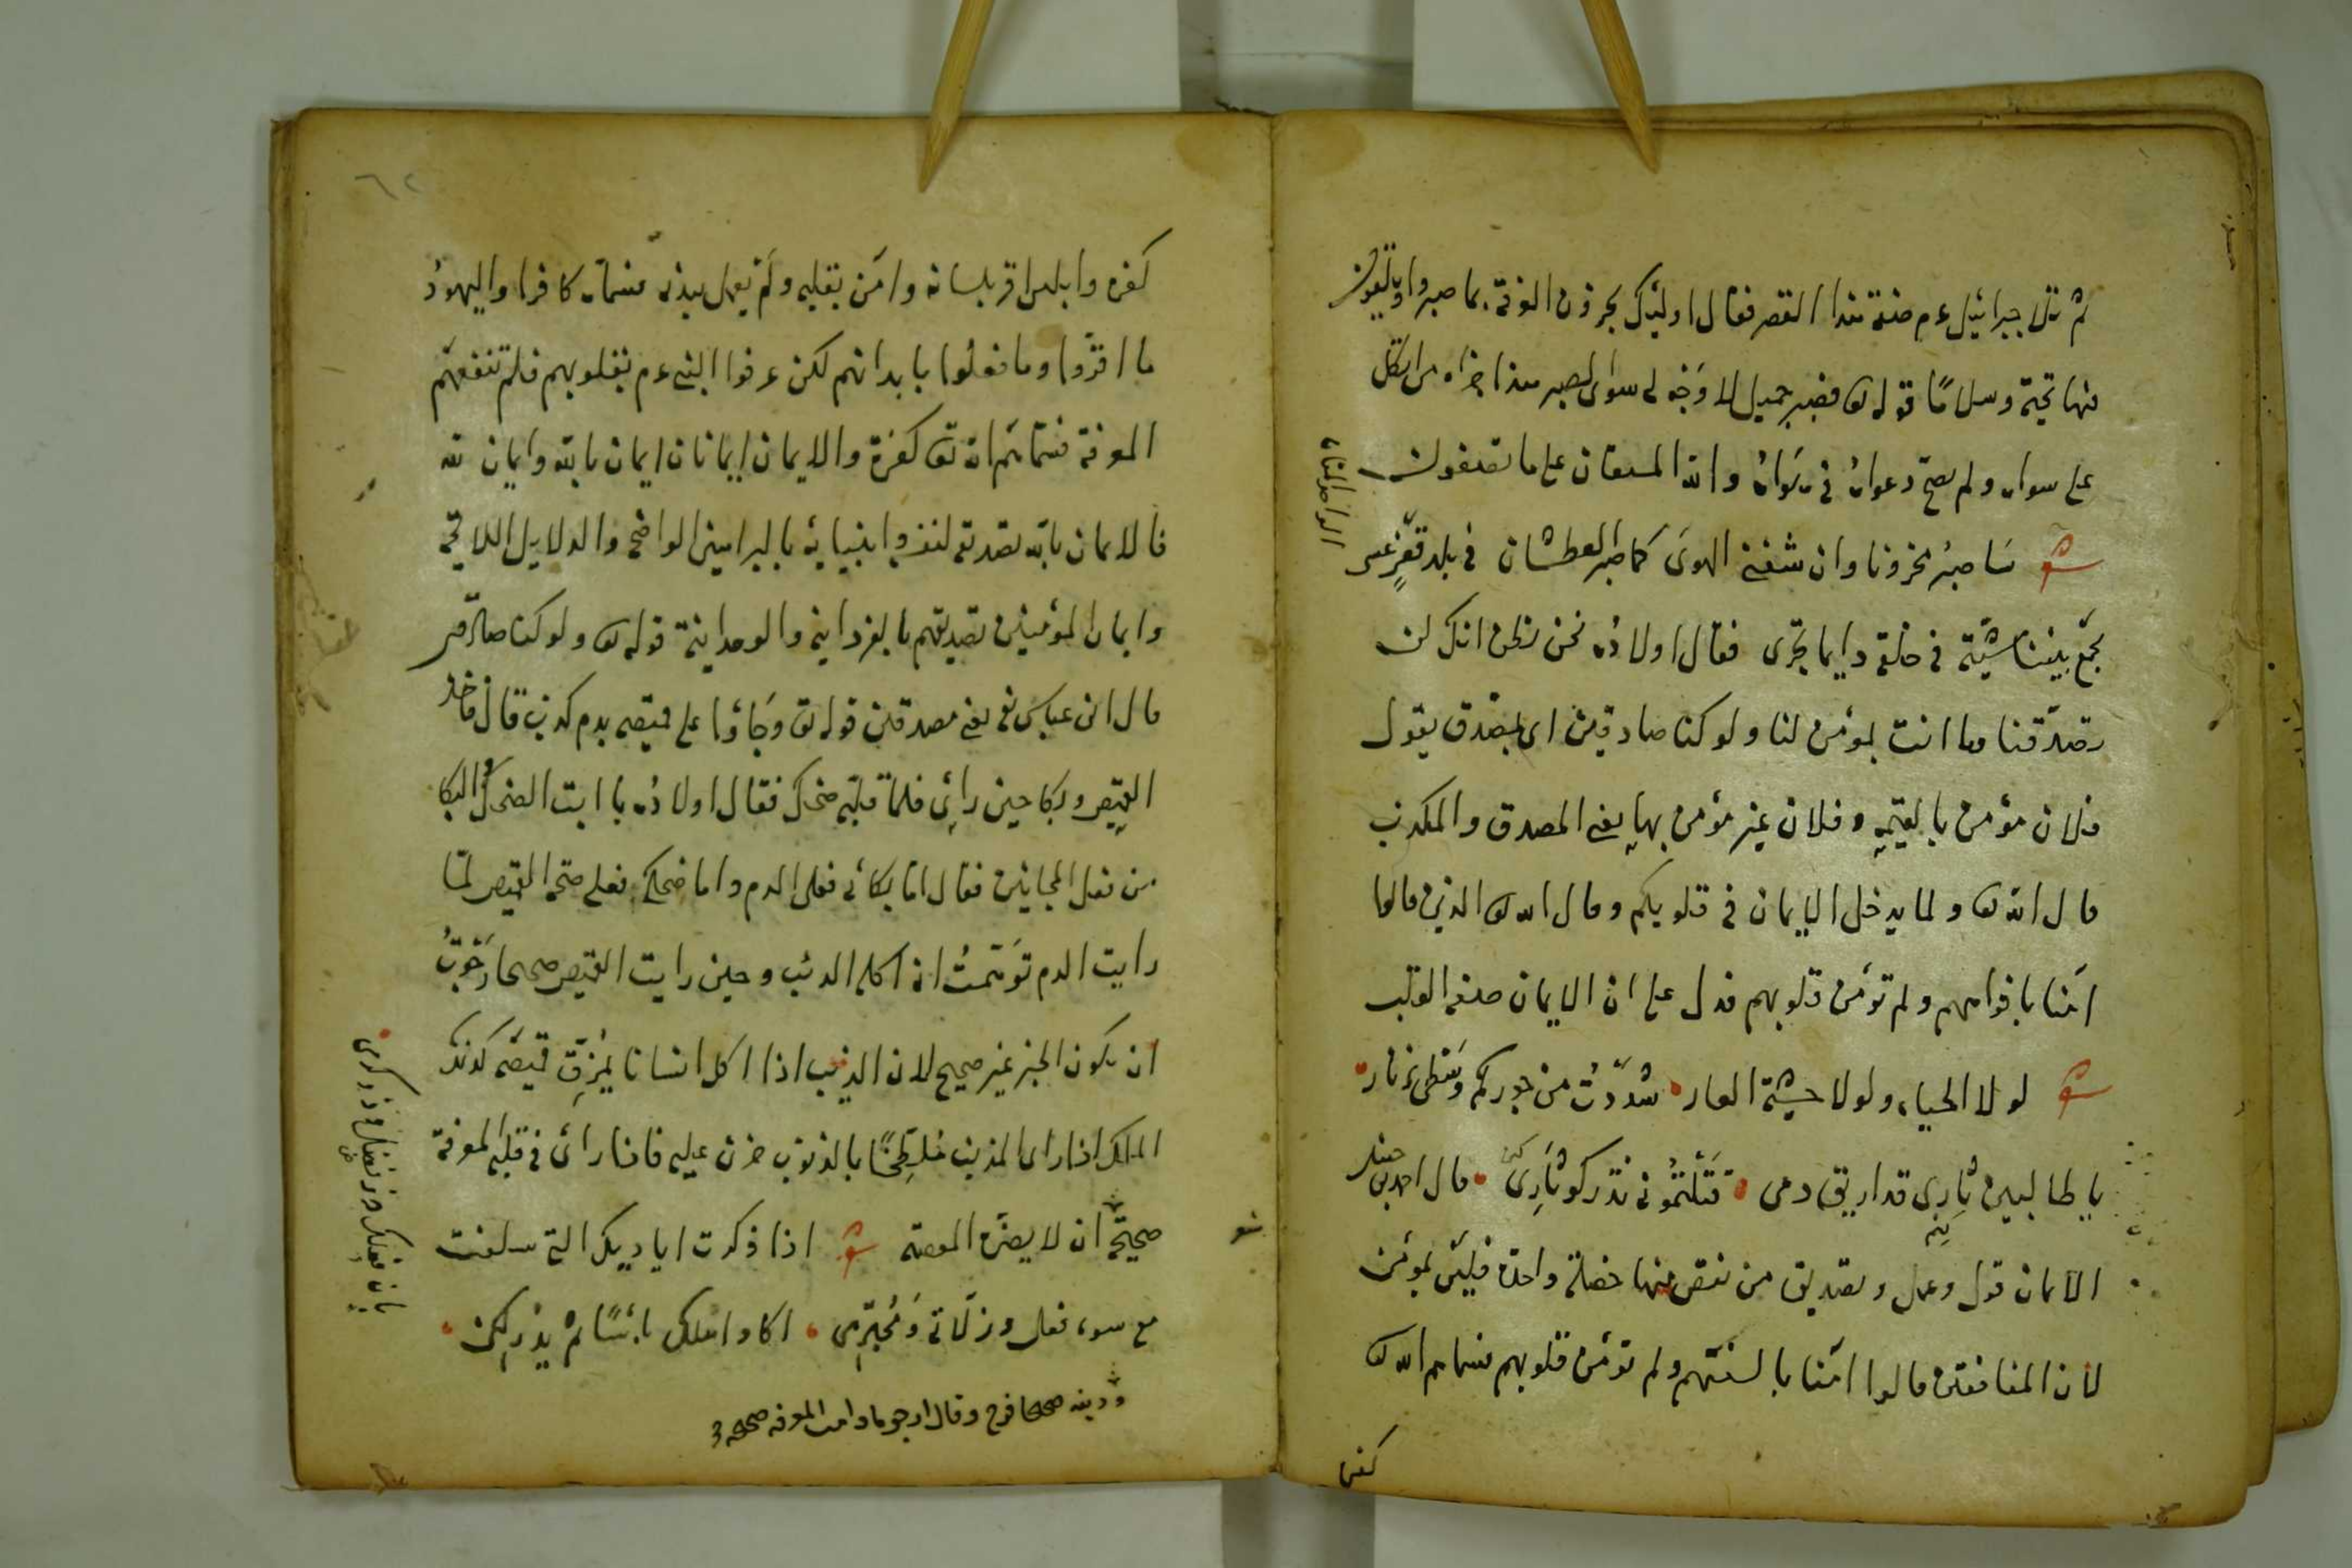 ثم تلا جبرائيل عم صفة هذا القصر فقال اوليك يجزون الغرفة بما صبروا ويلقون
فيها تحية وسلاما قوله تع فصبر جميل لا وجه لى سوى الصبر هذا جزاء من اتكل
على سواه ولم يصح دعواه فى هواه والله المستعان على ما تصفون
سا صبر محزونا وان شفنى الهوى كما صبر العطشان فى بلد قفر عسى
يجمع بيننا فى خلقه دايما تجرى فقال اولاده نحن نظن انك لن
تصدقنا وما انت بمؤمن لنا ولو كنا صادقين اى بمصدق يقول
فلان مؤمن بالقيمة وفلان غير مؤمن بها يعنى المصدق والمكذب
قال الله تع ولما يدخل الايمان فى قلوبكم وقال الله تع الذين قالوا
امنا بافواههم ولم تؤمن قلوبهم فدل على ان الايمان صفة القلب
لو لا الحياء ولولا خشية العار شددت من جوركم وسطى بزنار
يا طالبين ثارى قد اريق دمى قتلتمونى تدركو ثارى قال احمد بن حنبل
الايمان قول وعمل وتصديق من نقص منها خصلة واحدة فليس بمؤمن
لان المنافقين قالوا امنا بالسنتهم ولم تؤمن قلوبهم فسماهم الله تع
كفرة
كفرة وابليس اقر بلسانه وامن بقلبه ولم يعمل ببدنه فسماه كافرا واليهود
ما اقروا وما فعلوا بابدانهم لكن عرفوا النبى عم بقلوبهم فلم تنفعهم
المعرفة فسماهم الله تع كفرة والايمان ايمانان ايمان بالله وايمان لله
فالايمان بالله تصديقه لنفسه وانبيائه بالبراهين الواضحة والدلايل اللايحة
وايمان المؤمنين تصديقهم بالفردانية والوحدانية قوله تع ولو كنا صادقين
قال ابن عباس يعنى مصدقين قوله تع وجاؤا على قميصه بدم كذب قال فاخذ
القميص وبكا حين راى فلما قلبه ضحك فقال اولاده يا ابت الضحك والبكا
من فعل المجانين فقال اما بكائى فعلى الدم واما ضحكى فعلى صحة القميص لما
رايت الدم توهمت انه اكله الذئب وحين رايت القميص صحيحا رجوت
ان يكون الخبر غير صحيح لان الذيب اذا اكل انسانا يمزق قميصه كذلك
الملك اذا راى المذنب ملطخا بالذنوب حزن عليه فاذا راى فى قلبه المعرفة
صحيحة ان لا يضره المعصية اذا ذكرت اياديك التى سلفت
مع سوء فعلى وزلاتى ومجترمى اكاد اهلك يائسا ثم يدركنى
ودينه صحيحا فرح وقال ارجو ما دامت المعرفة صحيحة